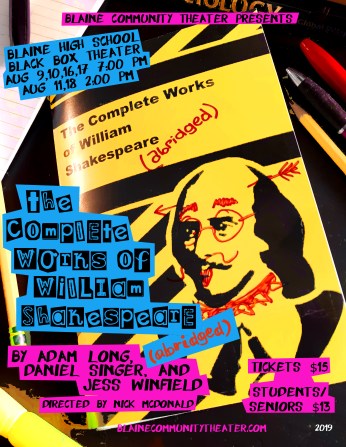 BLAINE COMMUNITY THEATER PRESENTS
BLAINE HIGH SCHOOL
BLACK BOX THEATER
AUG 9,10,16,17 7:00 PM
AUG 11,18 2:00 PM
The Complete Works
of William
Shakespeare
(abridged)
the
Complete
Works of
William
Shakespeare
(abridged)
BY ADAM LONG,
DANIEL SINGER, AND
JESS WINFIELD
DIRECTED BY NICK MCDONALD
TICKETS $15
STUDENTS/
SENIORS $13
BLAINECOMMUNITYTHEATER.COM
2019